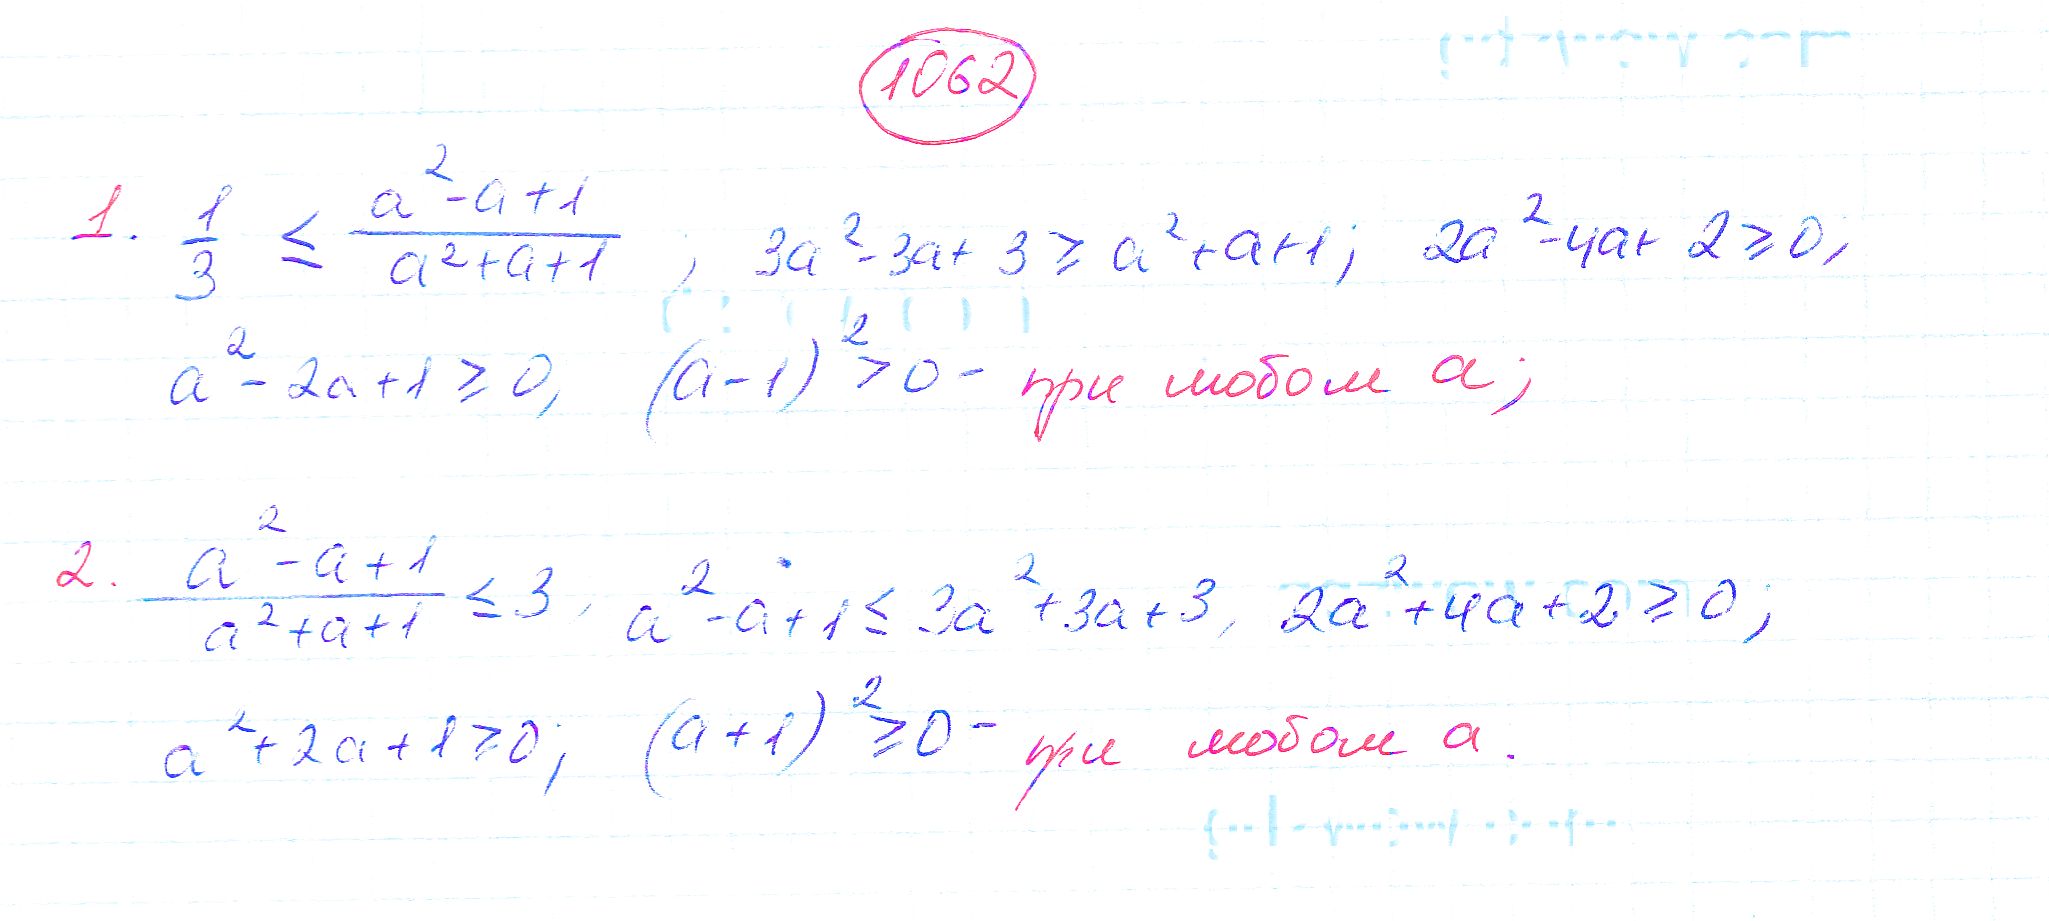 1062
1. 1/3 ≤ (a²-a+1)/(a²+a+1) ; 3a²-3a+3 ≥ a²+a+1; 2a²-4a+2 ≥ 0,
a²-2a+1 ≥ 0, (a-1)² > 0 - при любом a;
2. (a²-a+1)/(a²+a+1) ≤ 3, a²-a+1 ≤ 3a²+3a+3, 2a²+4a+2 ≥ 0;
a²+2a+1 ≥ 0; (a+1)² ≥ 0 - при любом a.